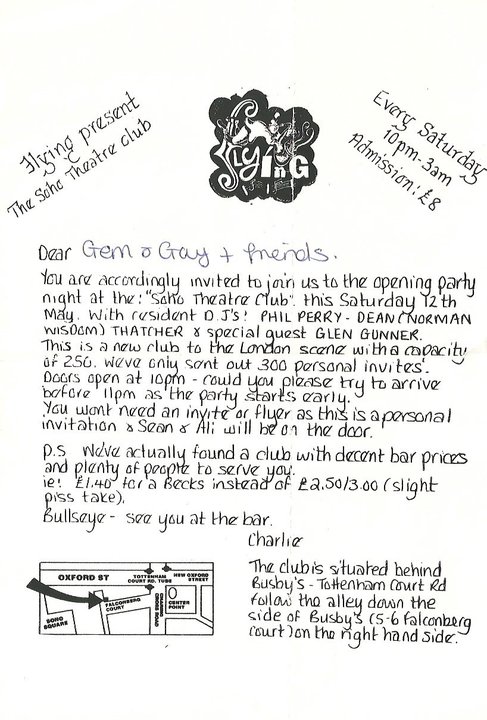 Flying present
@ The Soho Theatre Club
Flying
Every Saturday
10pm-3am
Admission: £8
Dear Gem & Gay + friends.
You are accordingly invited to join us to the opening party
night at the: "Soho Theatre Club". this Saturday 12th
May. With resident D.J's! PHIL PERRY - DEAN (NORMAN
WISDOM) THATCHER & special guest GLEN GUNNER.
This is a new club to the London scene with a capacity
of 250. We've only sent out 300 personal invites'.
Doors open at 10pm - could you please try to arrive
before 11pm as the party starts early.
You wont need an invite or flyer as this is a personal
invitation & Sean & Ali will be on the door.
P.S We've actually found a club with decent bar prices
and plenty of people to serve you.
ie! £1.40 for a Becks instead of £2.50/3.00 (slight
piss take).
Bullseye - see you at the bar.
Charlie
OXFORD ST
TOTTENHAM
COURT RD. TUBE
NEW OXFORD
STREET
FALCONBERG
COURT
CHARING
CROSS ROAD
CENTER
POINT
SOHO
SQUARE
The club is situated behind
Busby's - Tottenham Court Rd
follow the alley down the
side of Busby's (5-6 Falconberg
court) on the right hand side.